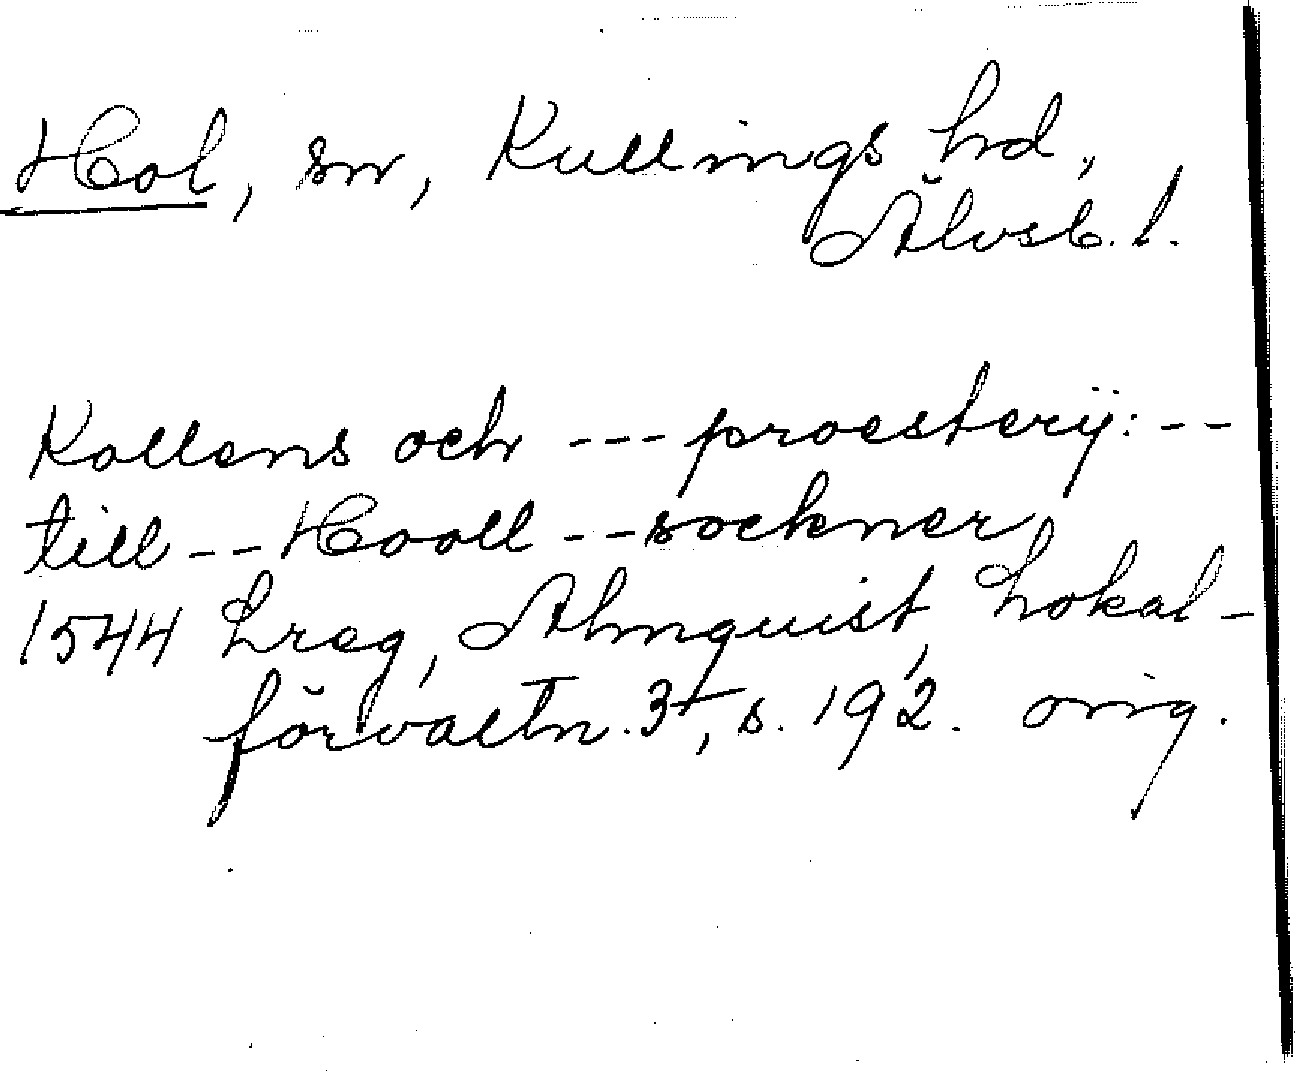 Hol, sn, Kullings hd,
Älvsb. l.
Kollens och --- proesterij: --
till -- Hooll -- sockner
1544 Lreg, Almquist, Lokal-
förvaltn. 3, s. 192. orig.